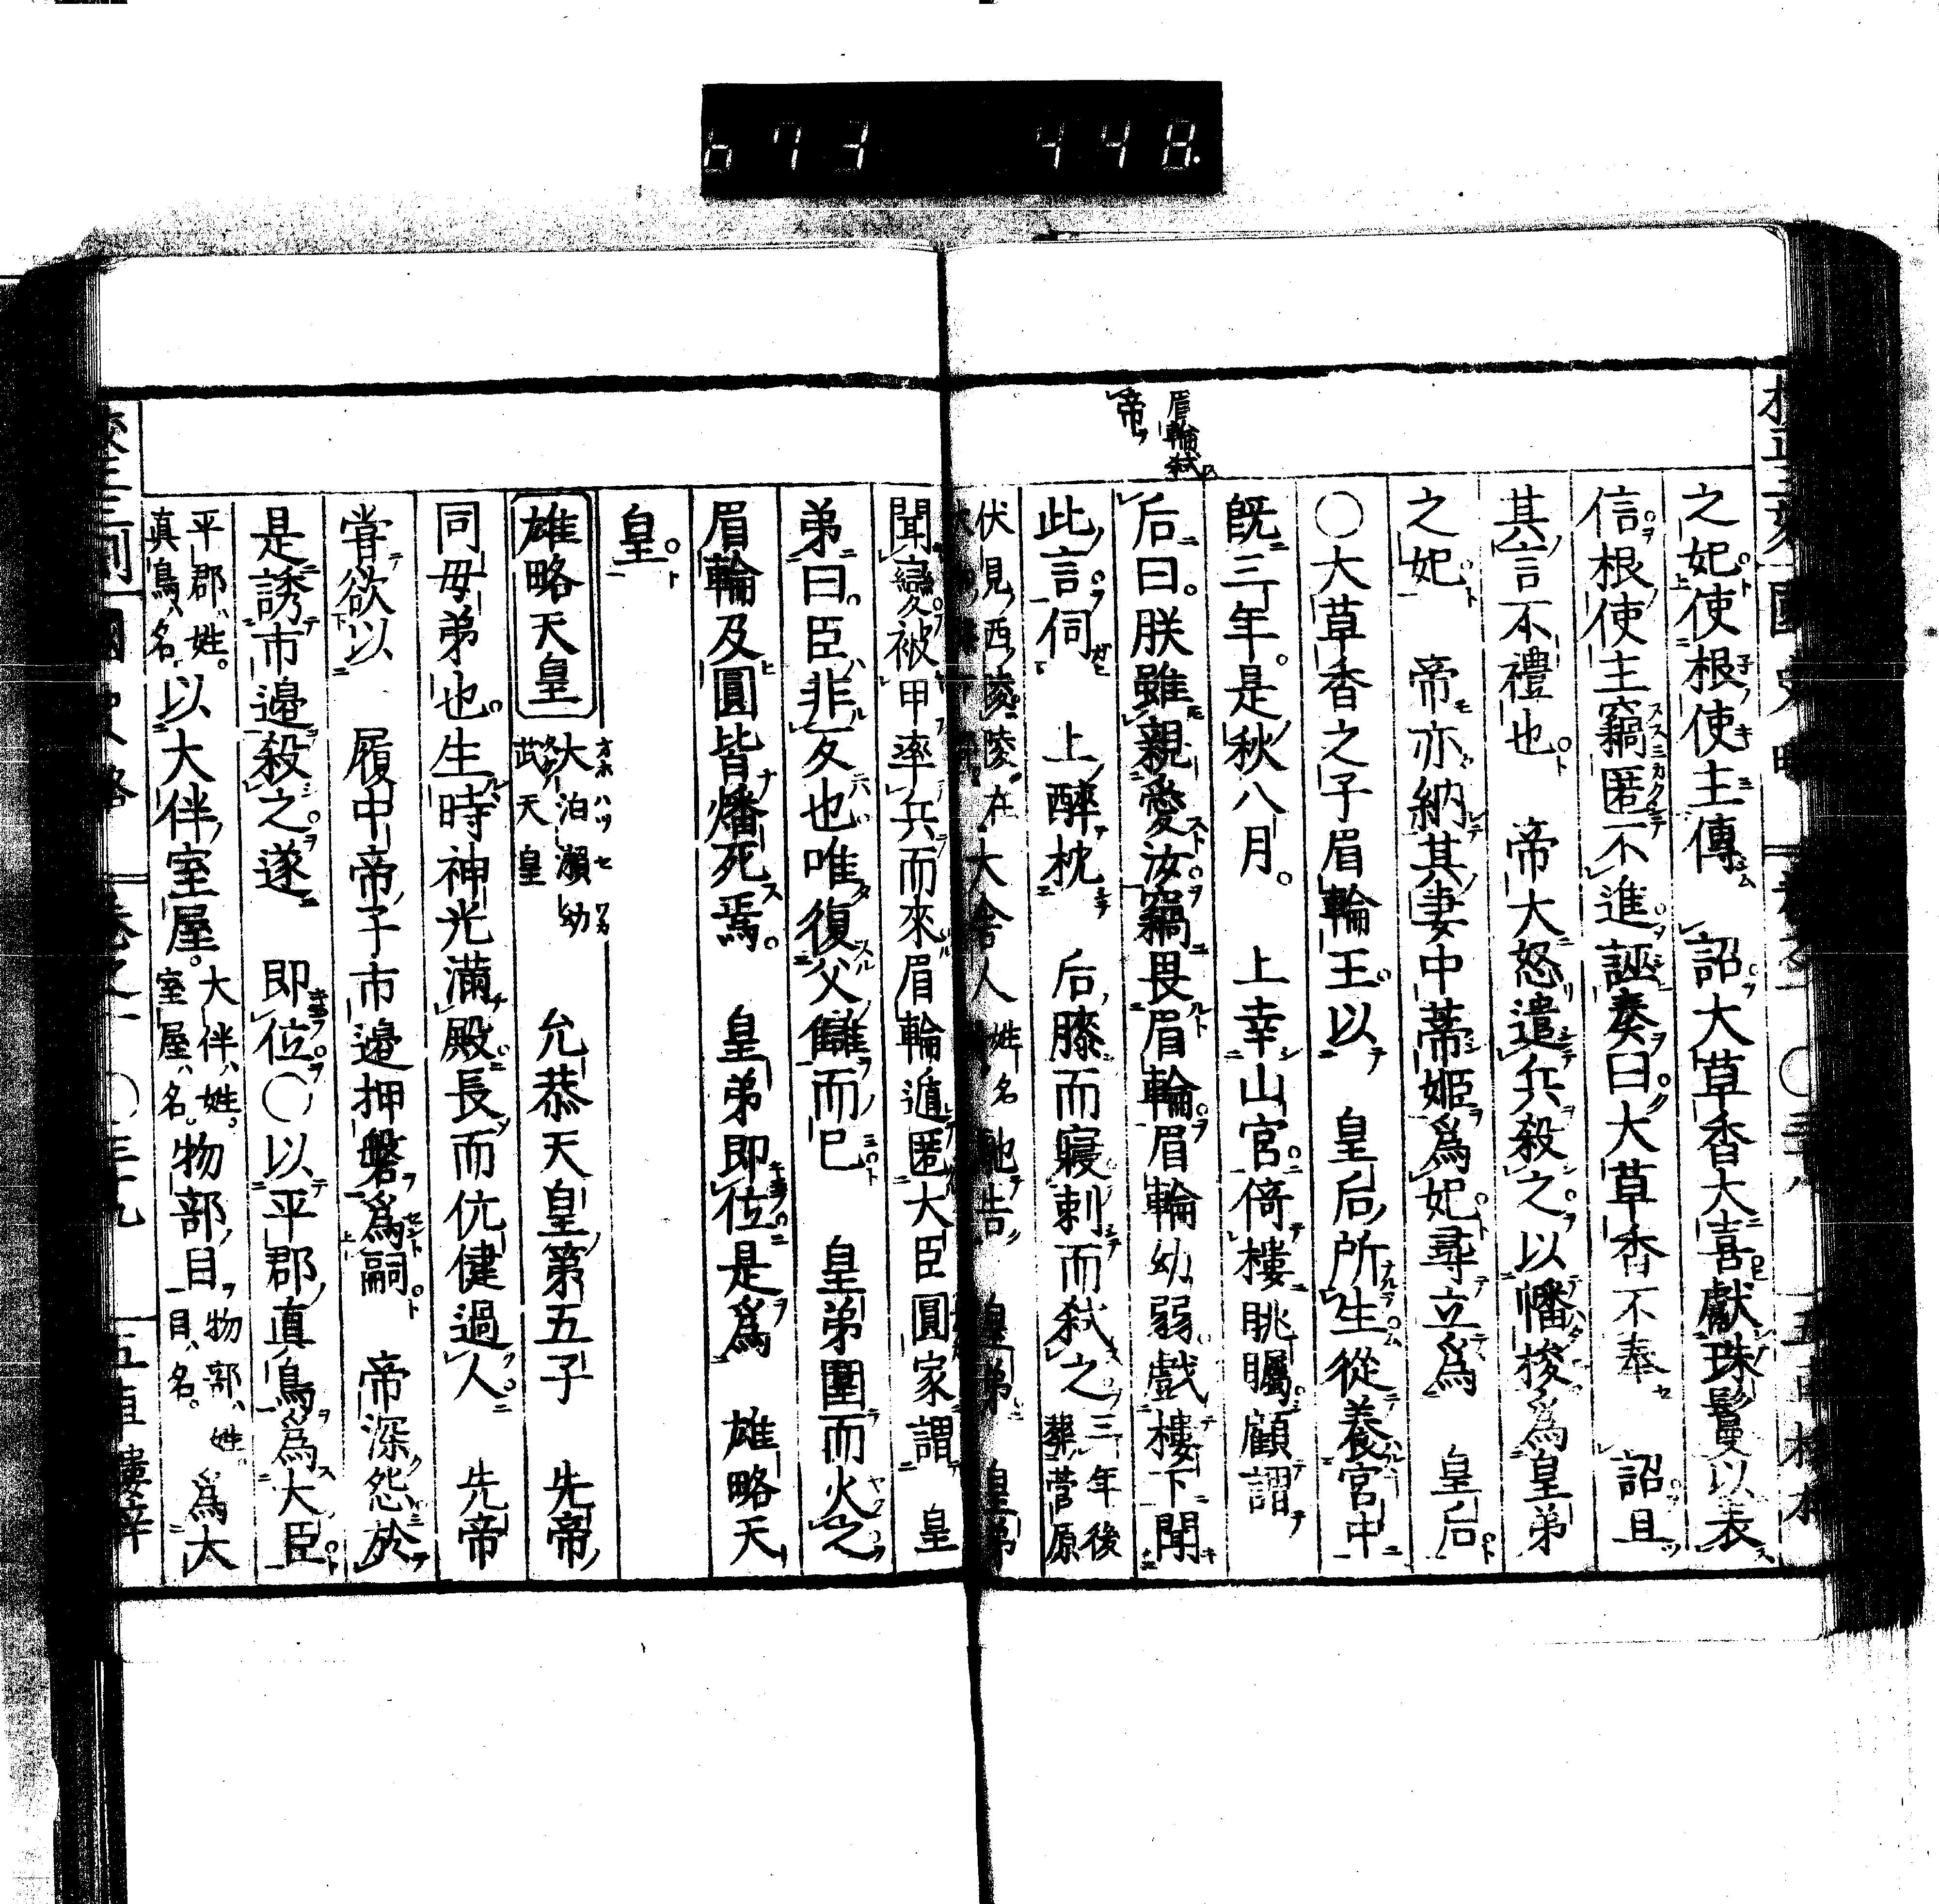 673 448.
國史略
眉輪弑
帝
之妃使根使主傳　詔大草香大喜獻珠鬘以表
信根使主竊匿不進誣奏曰大草香不奉　詔且
其言不禮也　帝大怒遣兵殺之以幡梭爲皇弟
之妃　帝亦納其妻中蒂姫爲妃尋立爲　皇后
○大草香之子眉輪王以　皇后所生從養宮中
既三年是秋八月　上幸山宮倚樓眺矚顧謂
后曰朕雖親愛汝竊畏眉輪眉輪幼弱戲樓下聞
此言伺　上醉枕　后膝而寢刺而弑之三年後葬菅原
伏見西陵陵在大舍人姓名馳告　皇弟　皇弟
聞變被甲率兵而來眉輪遁匿大臣圓家謂　皇
弟曰臣非反也唯復父讎而已　皇弟圍而火之
眉輪及圓皆燔死焉　皇弟即位是爲　雄略天
皇
雄略天皇 大泊瀨幼武天皇　允恭天皇第五子　先帝
同母弟也生時神光滿殿長而伉健過人　先帝
嘗欲以　履中帝子市邊押磐爲嗣　帝深怨於
是誘市邊殺之遂　即位○以平郡真鳥爲大臣
平郡ハ姓真鳥ハ名以大伴室屋大伴ハ姓室屋ハ名物部目物部ハ姓目ハ名爲大
國史略 卷之一 ○三九 五車樓梓